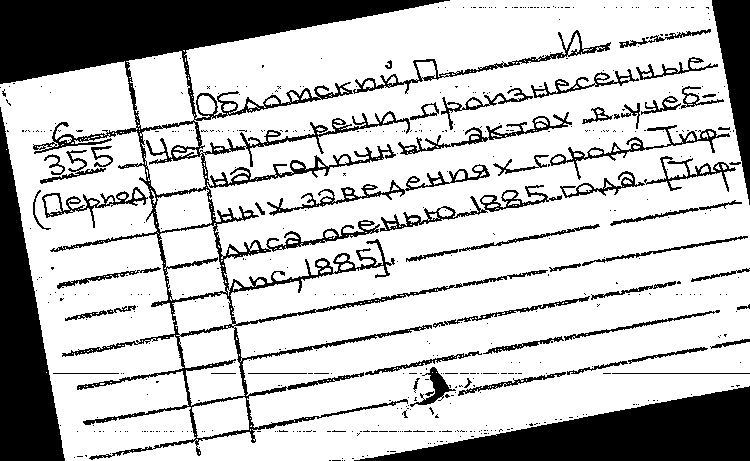 И
Обломский, П
6
355
(Период)
Четыре речи, произнесенные
на годичных актах в учеб-
ных заведениях города Тиф-
лиса осенью 1885 года. [Тиф-
лис, 1885].